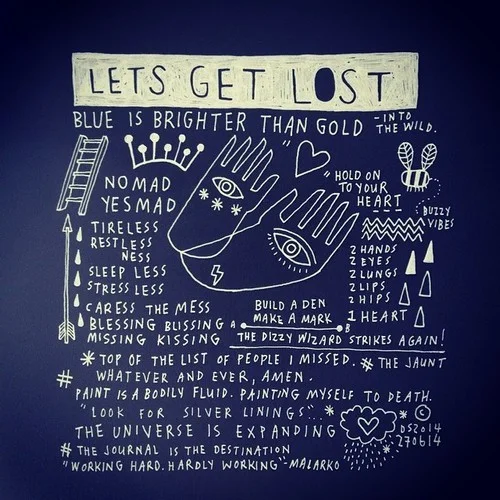 LETS GET LOST
BLUE IS BRIGHTER THAN GOLD -INTO
THE WILD.
NOMAD
YESMAD
"HOLD ON
TO YOUR
HEART
BUZZY
VIBES
TIRELESS
RESTLESS
NESS
SLEEP LESS
STRESS LESS
CARESS THE MESS
BLESSING BLISSING
MISSING KISSING
2 HANDS
2 EYES
2 LUNGS
2 LIPS
2 HIPS
1 HEART
BUILD A DEN
MAKE A MARK
A B
THE DIZZY WIZARD STRIKES AGAIN!
* TOP OF THE LIST OF PEOPLE I MISSED. # THE JAUNT
# WHATEVER AND EVER, AMEN.
PAINT IS A BODILY FLUID. PAINTING MYSELF TO DEATH.
"LOOK FOR SILVER LININGS"..
THE UNIVERSE IS EXPANDING
# THE JOURNAL IS THE DESTINATION
"WORKING HARD. HARDLY WORKING"-MALARKO
©
DS2014
270614